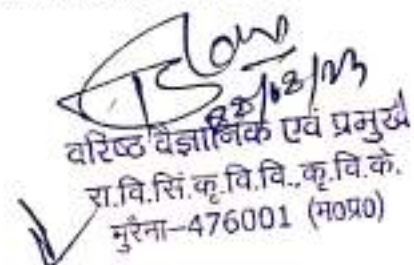 वरिष्ठ वैज्ञानिक एवं प्रमुख
रा.वि.सिं.कृ.वि.वि.,कृ.वि.के.
मुरैना-476001 (म0प्र0)